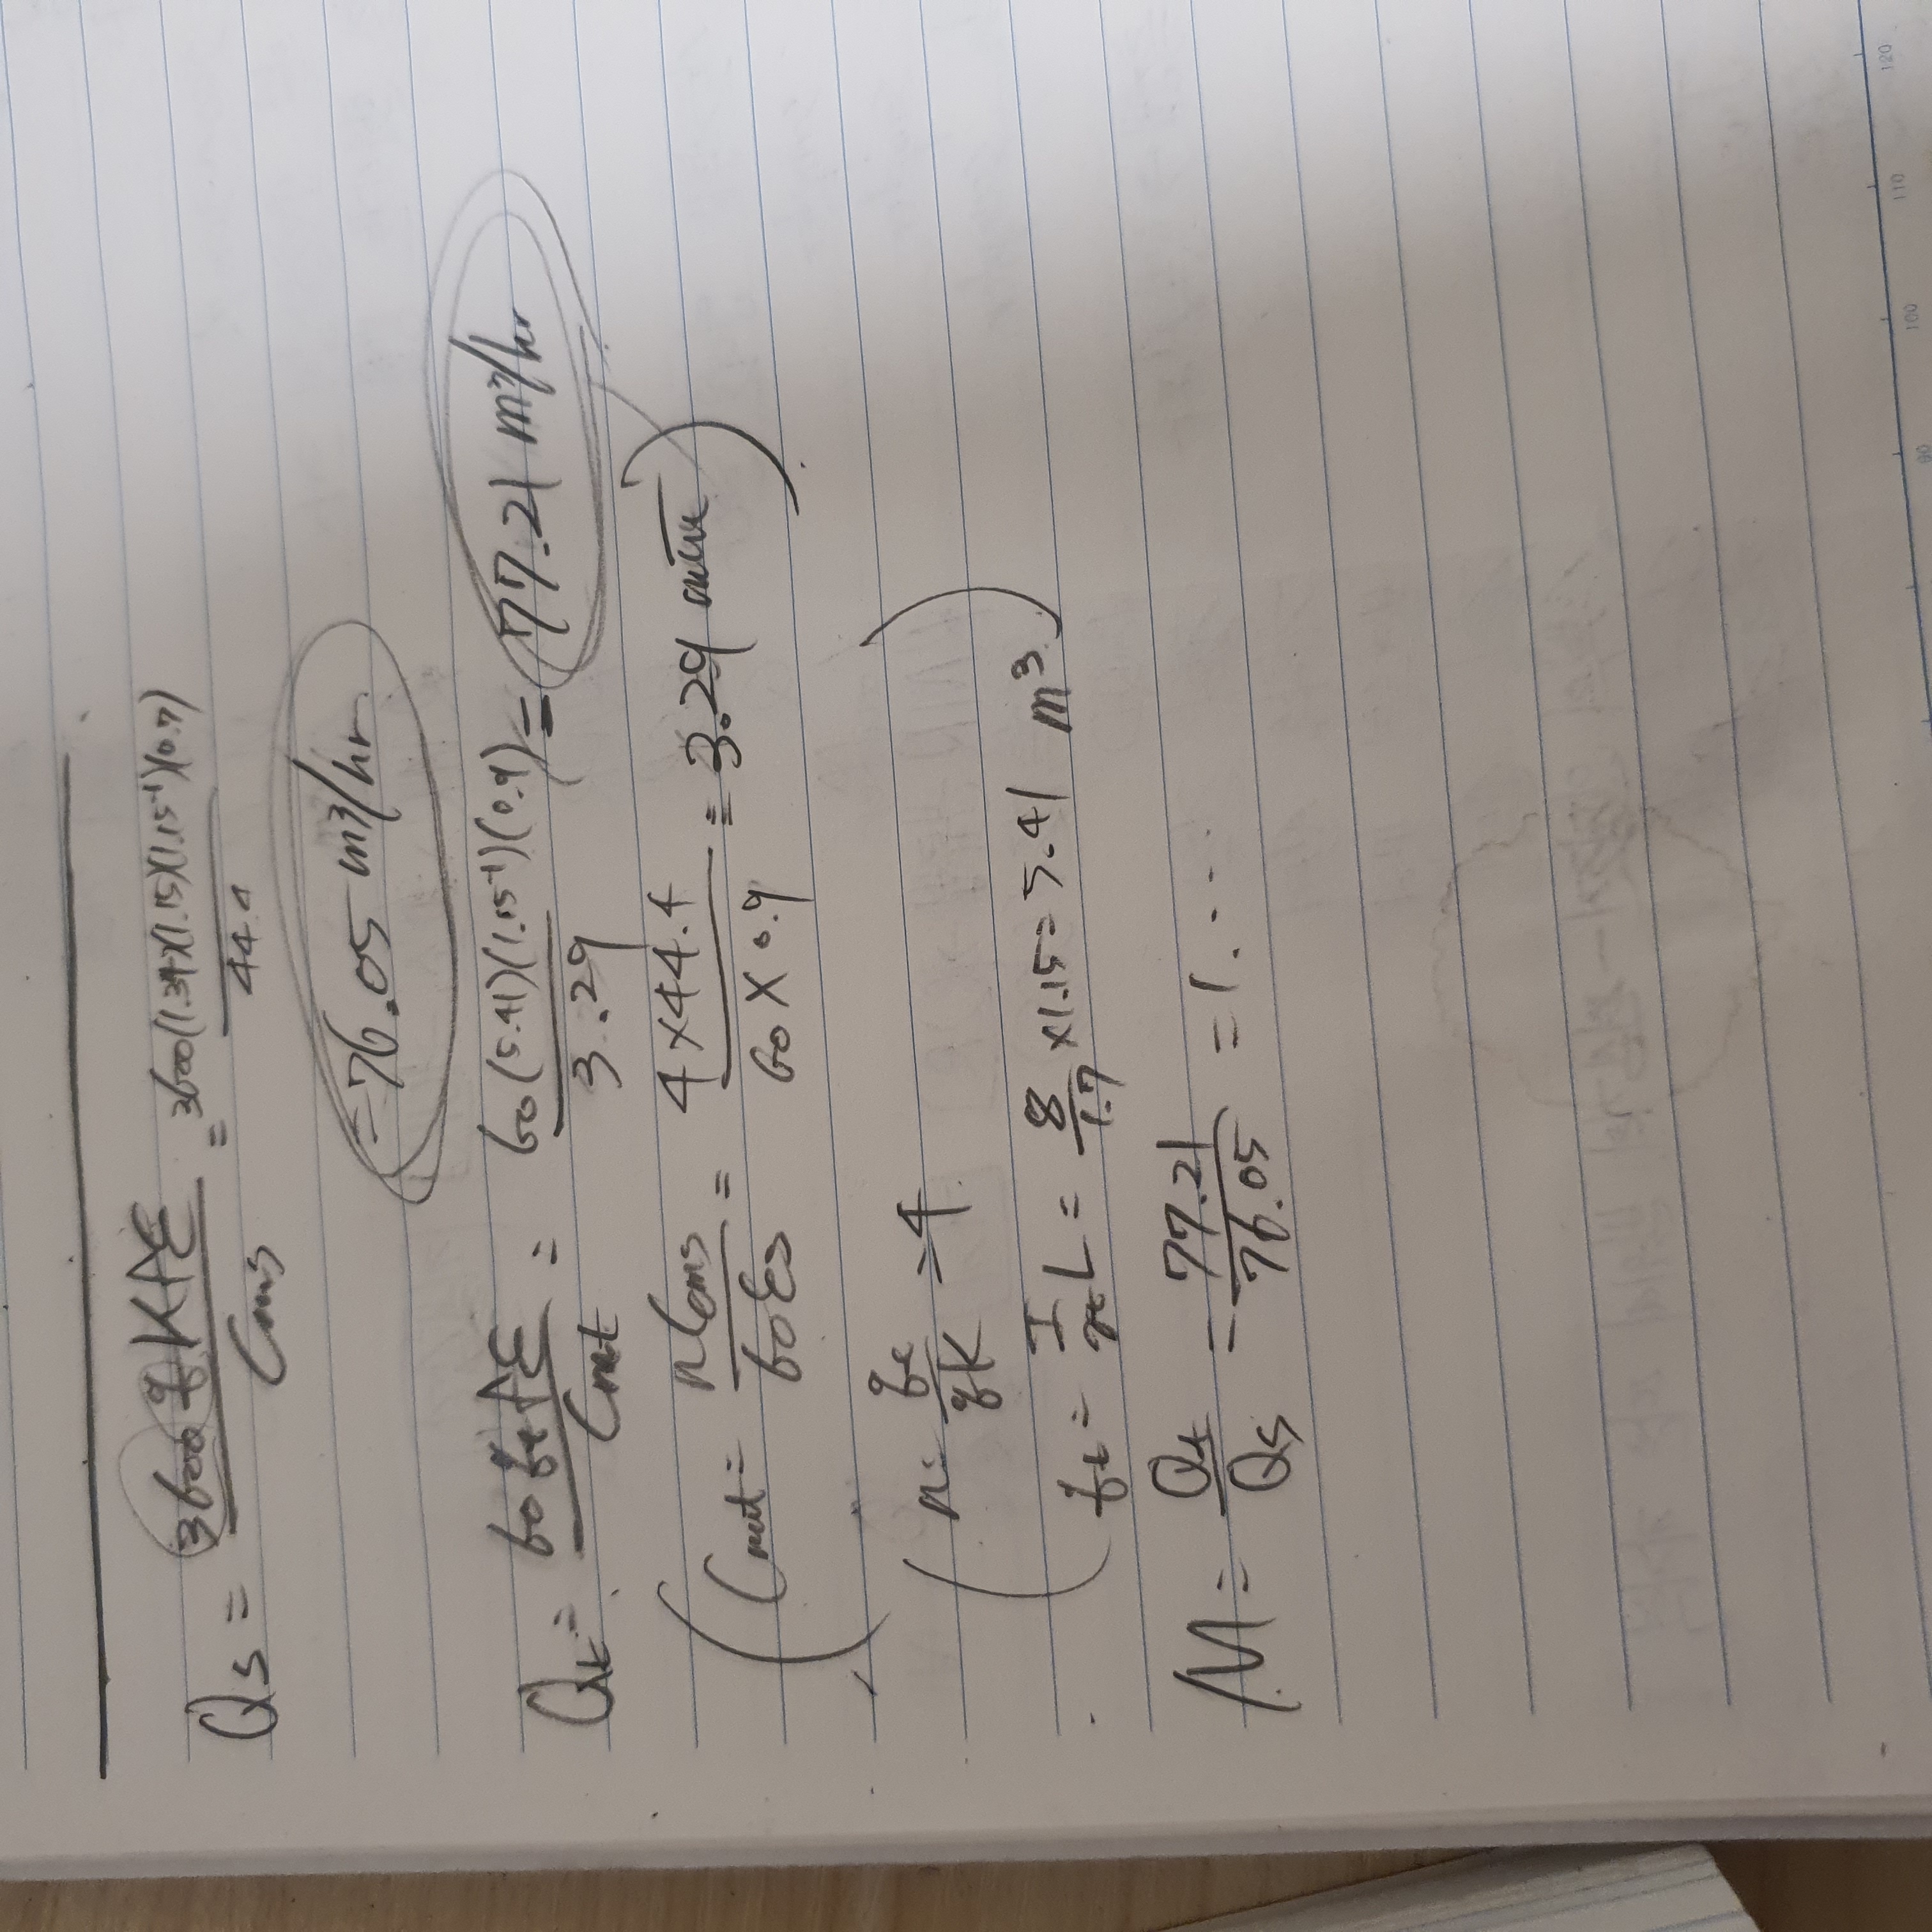 Qs = 3600 q K f E / Cms = 3600(1.34)(1.15)(1.15⁻¹)(0.7) / 44.4
= 76.05 m³/hr
Qt = 60 qt f E / Cmt = 60(5.41)(1.15⁻¹)(0.9) / 3.29 = 77.21 m³/hr
(Cmt = n Cms / 60 Es = 4×44.4 / 60×0.9 = 3.29 min)
(n = qt / qK = 4
qt = T / γt L = 8 / 1.7 ×1.15 = 5.41 m³)
M = Qt / Qs = 77.21 / 76.05 = 1. ...
90 100 110 120